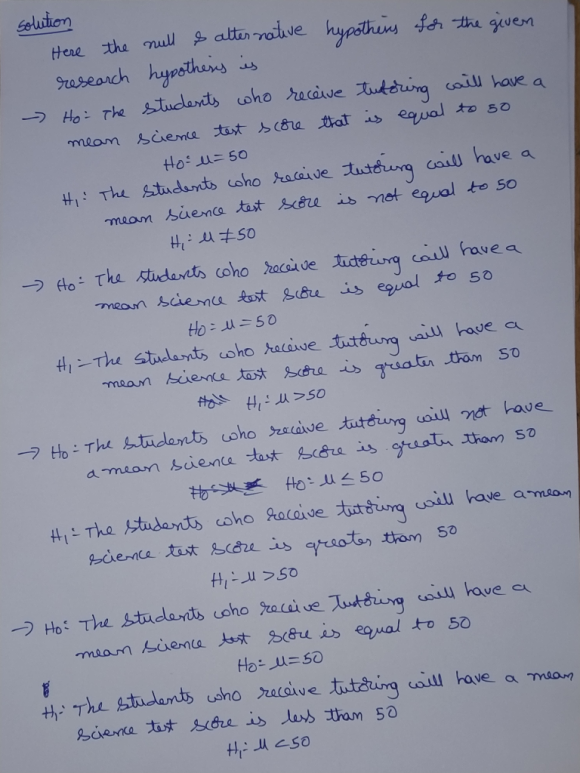 Solution
Here the null & alternative hypothesis for the given
research hypothesis is
→ H0: The students who receive tutoring will have a
mean science test score that is equal to 50
H0: μ=50
H1: The students who receive tutoring will have a
mean science test score is not equal to 50
H1: μ≠50
→ H0: The students who receive tutoring will have a
mean science test score is equal to 50
H0: μ=50
H1: The students who receive tutoring will have a
mean science test score is greater than 50
H1: μ>50
→ H0: The students who receive tutoring will not have
a mean science test score is greater than 50
H0: μ≤50
H1: The students who receive tutoring will have a mean
science test score is greater than 50
H1: μ>50
→ H0: The students who receive Tutoring will have a
mean science test score is equal to 50
H0: μ=50
H1: The students who receive tutoring will have a mean
science test score is less than 50
H1: μ<50